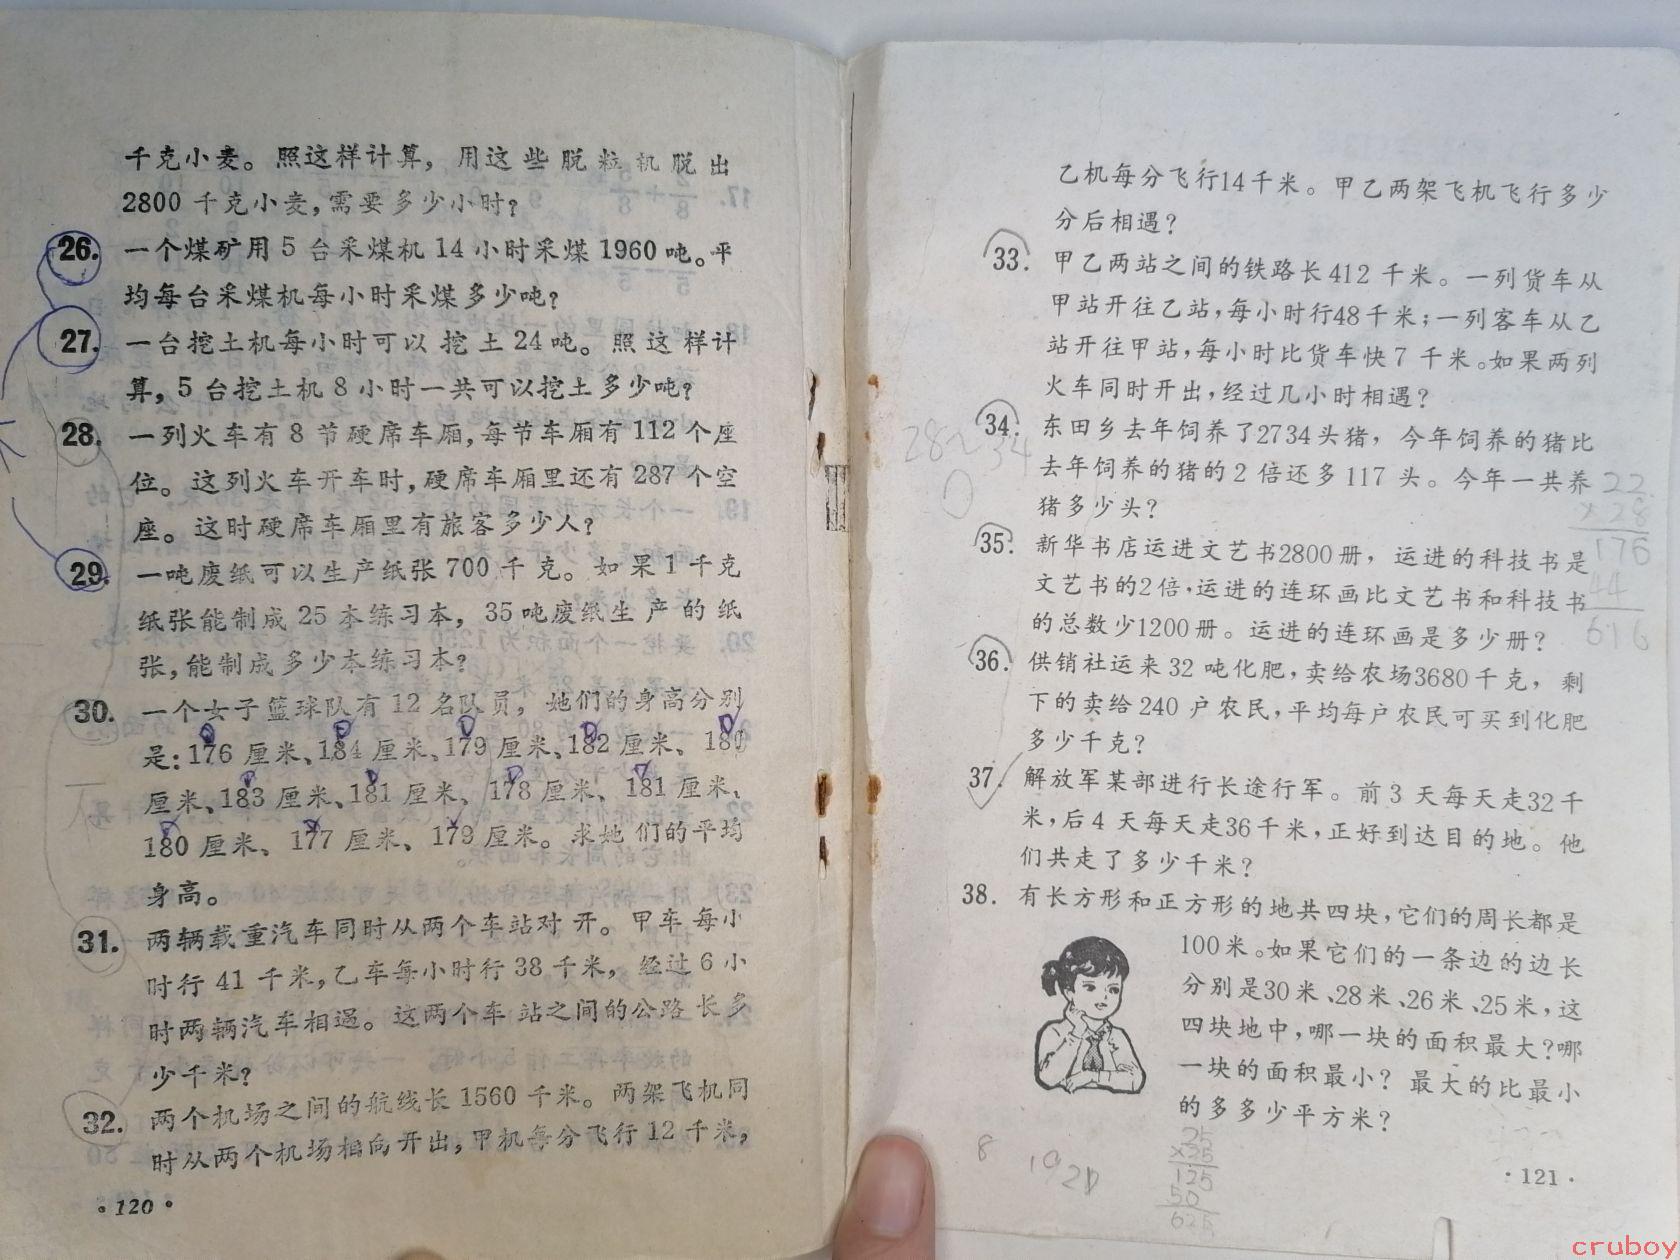 千克小麦。照这样计算，用这些脱粒机脱出
2800千克小麦，需要多少小时？
26. 一个煤矿用5台采煤机14小时采煤1960吨。平
均每台采煤机每小时采煤多少吨？
27. 一台挖土机每小时可以挖土24吨。照这样计
算，5台挖土机8小时一共可以挖土多少吨？
28. 一列火车有8节硬席车厢，每节车厢有112个座
位。这列火车开车时，硬席车厢里还有287个空
座。这时硬席车厢里有旅客多少人？
29. 一吨废纸可以生产纸张700千克。如果1千克
纸张能制成25本练习本，35吨废纸生产的纸
张，能制成多少本练习本？
30. 一个女子篮球队有12名队员，她们的身高分别
是：176厘米、184厘米、179厘米、182厘米、180
厘米、183厘米、181厘米、178厘米、181厘米、
180厘米、177厘米、179厘米。求她们的平均
身高。
31. 两辆载重汽车同时从两个车站对开。甲车每小
时行41千米，乙车每小时行38千米，经过6小
时两辆汽车相遇。这两个车站之间的公路长多
少千米？
32. 两个机场之间的航线长1560千米。两架飞机同
时从两个机场相向开出，甲机每分飞行12千米，
·120·
乙机每分飞行14千米。甲乙两架飞机飞行多少
分后相遇？
33. 甲乙两站之间的铁路长412千米。一列货车从
甲站开往乙站，每小时行48千米；一列客车从乙
站开往甲站，每小时比货车快7千米。如果两列
火车同时开出，经过几小时相遇？
28~34
34. 东田乡去年饲养了2734头猪，今年饲养的猪比
去年饲养的猪的2倍还多117头。今年一共养
猪多少头？
22
×28
176
44
616
35. 新华书店运进文艺书2800册，运进的科技书是
文艺书的2倍，运进的连环画比文艺书和科技书
的总数少1200册。运进的连环画是多少册？
36. 供销社运来32吨化肥，卖给农场3680千克，剩
下的卖给240户农民，平均每户农民可买到化肥
多少千克？
37. 解放军某部进行长途行军。前3天每天走32千
米，后4天每天走36千米，正好到达目的地。他
们共走了多少千米？
38. 有长方形和正方形的地共四块，它们的周长都是
100米。如果它们的一条边的边长
分别是30米、28米、26米、25米，这
四块地中，哪一块的面积最大？哪
一块的面积最小？最大的比最小
的多多少平方米？
25
×25
125
50
625
8
·121·
cruboy